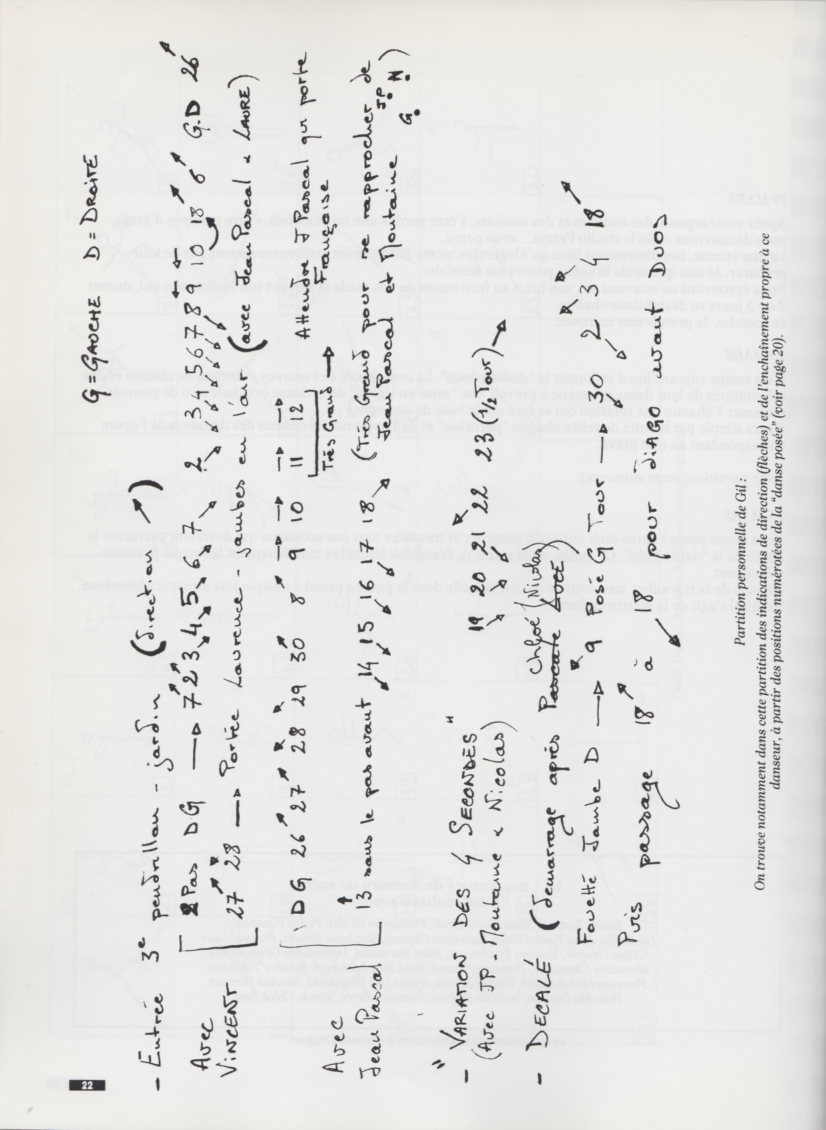 G = GAUCHE D = DROITE
– Entrée 3e pendrillon – jardin (direction ↗)
Avec VINCENT
2 Pas DG → 7 2 3 4 5 6 7 2 3 4 5 6 7 8 9 10 18 6 G.D 26
27 28 → Portée Laurence – Jambes en l'air (avec Jean Pascal & LAURE)
Avec Jean Pascal
DG 26 27 28 29 30 8 9 10 11 12 Attendre J Pascal qui porte
Très Grand → Françoise
13 sans le pas avant 14 15 16 17 18 (Très Grand pour se rapprocher de
Jean Pascal et Montaine G. JP. N.)
– "VARIATION DES 4 SECONDES" 19 20 21 22 23 (1/2 Tour) →
(Avec JP – Montaine & Nicolas)
– DECALÉ (demarrage après Chloé/Nicolas)
Fouetté Jambe D → 9 Posé G Tour → 30 2 3 1 18
Puis passage 18 à 18 pour DiAGO avant DUOS
Partition personnelle de Gil :
On trouve notamment dans cette partition des indications de direction (flèches) et de l'enchaînement propre à ce
danseur, à partir des positions numérotées de la "danse posée" (voir page 20).
22